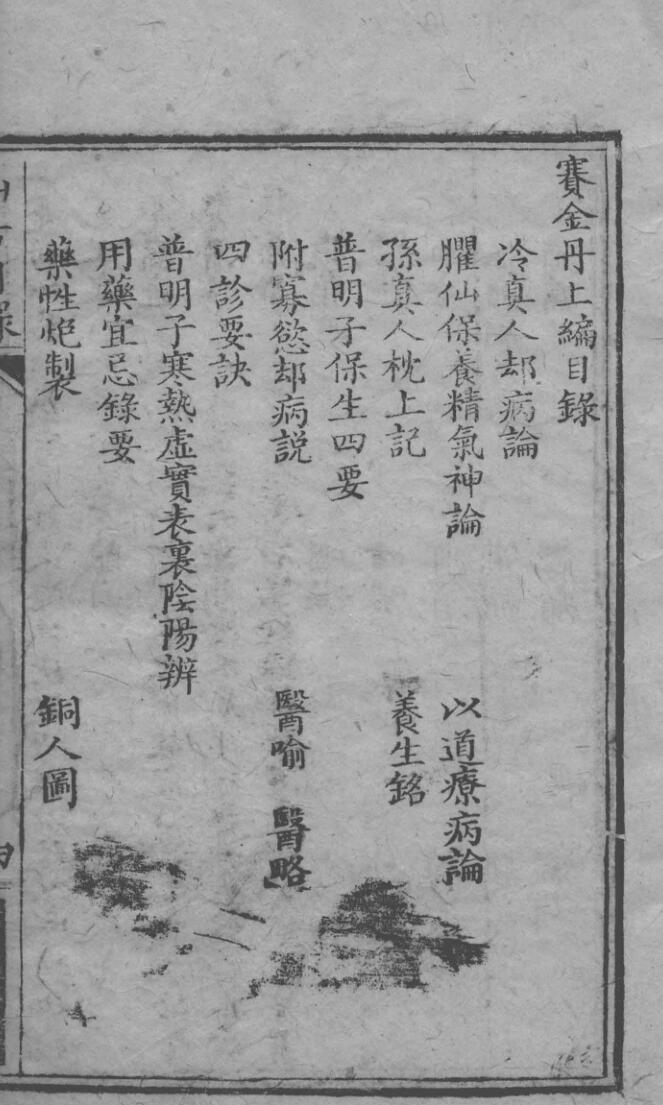 賽金丹上編目錄
冷真人却病論
臞仙保養精氣神論 以道療病論
孫真人枕上記 養生銘
普明子保生四要
附寡慾却病説 醫喻 醫略
四診要訣
普明子寒熱虛實表裏陰陽辨
用藥宜忌錄要
藥性炮製 銅人圖